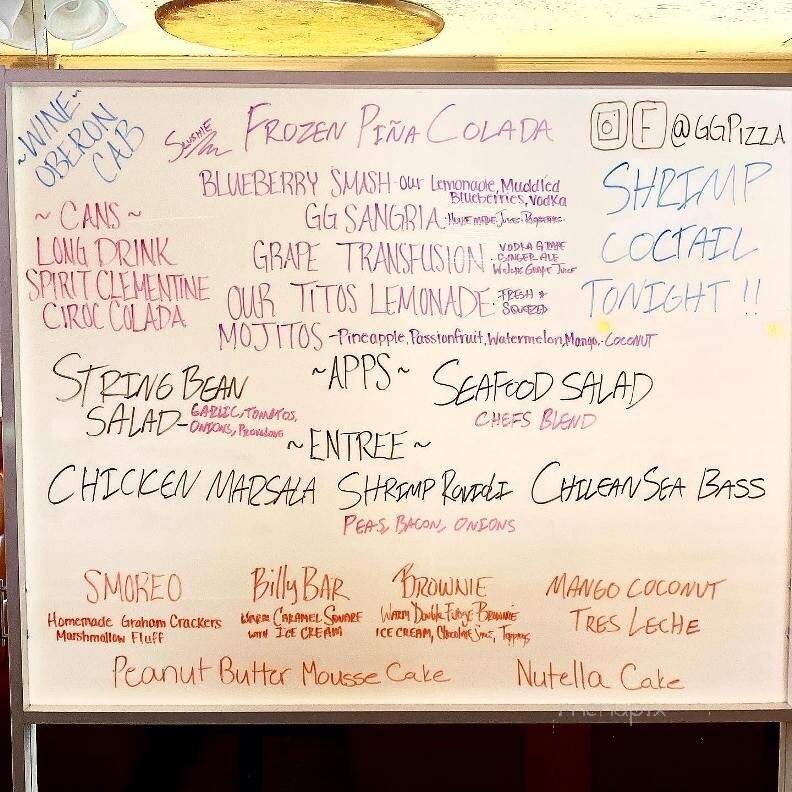 ~WINE~
OBERON
CAB
SLUSHIE FROZEN PIÑA COLADA
F @GGPIZZA
BLUEBERRY SMASH - Our Lemonade, Muddled
Blueberries, Vodka
SHRIMP
COCTAIL
TONIGHT !!
~ CANS ~
LONG DRINK
SPIRIT CLEMENTINE
CIROC COLADA
GG SANGRIA - HOMEMADE, Juices
GRAPE TRANSFUSION - VODKA GRAPE
GINGER ALE
Welchs Grape Juice
OUR TITOS LEMONADE - FRESH &
SQUEEZED
MOJITOS - Pineapple, Passionfruit, Watermelon, Mango, - COCONUT
~APPS~
STRING BEAN
SALAD - GARLIC, TOMATOS,
ONIONS, PROVOLONE
SEAFOOD SALAD
CHEFS BLEND
~ENTREE~
CHICKEN MARSALA SHRIMP RAVIOLI CHILEAN SEA BASS
PEAS, BACON, ONIONS
SMOREO
Homemade Graham Crackers
Marshmallow Fluff
Billy BAR
WARM CARAMEL SQUARE
WITH ICE CREAM
BROWNIE
WARM Double Fudge BROWNIE
ICE CREAM, Chocolate Sauce, Toppings
MANGO COCONUT
TRES LECHE
Peanut Butter Mousse Cake
Nutella Cake
menupix